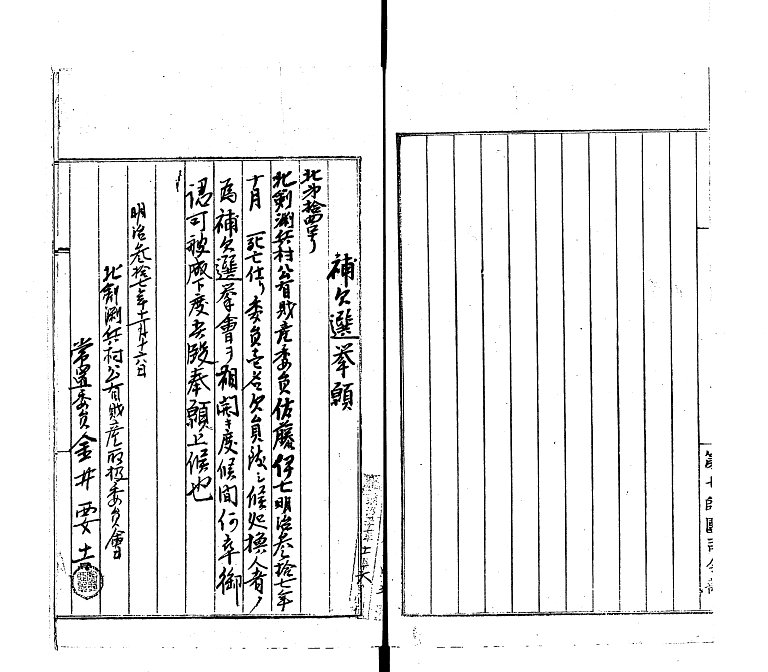 補欠選挙願
北第拾四号
北剣淵兵村公有財産委員佐藤伊七明治参拾七年
十月 死亡仕リ委員壱名欠員致シ候処換人者ノ
為補欠選挙會ヲ相開キ度候間何卒御
認可被成下度此段奉願上候也
明治参拾七年十一月十六日
北剣淵兵村公有財産取扱委員會
常置委員金井要吉
第七師團司令部